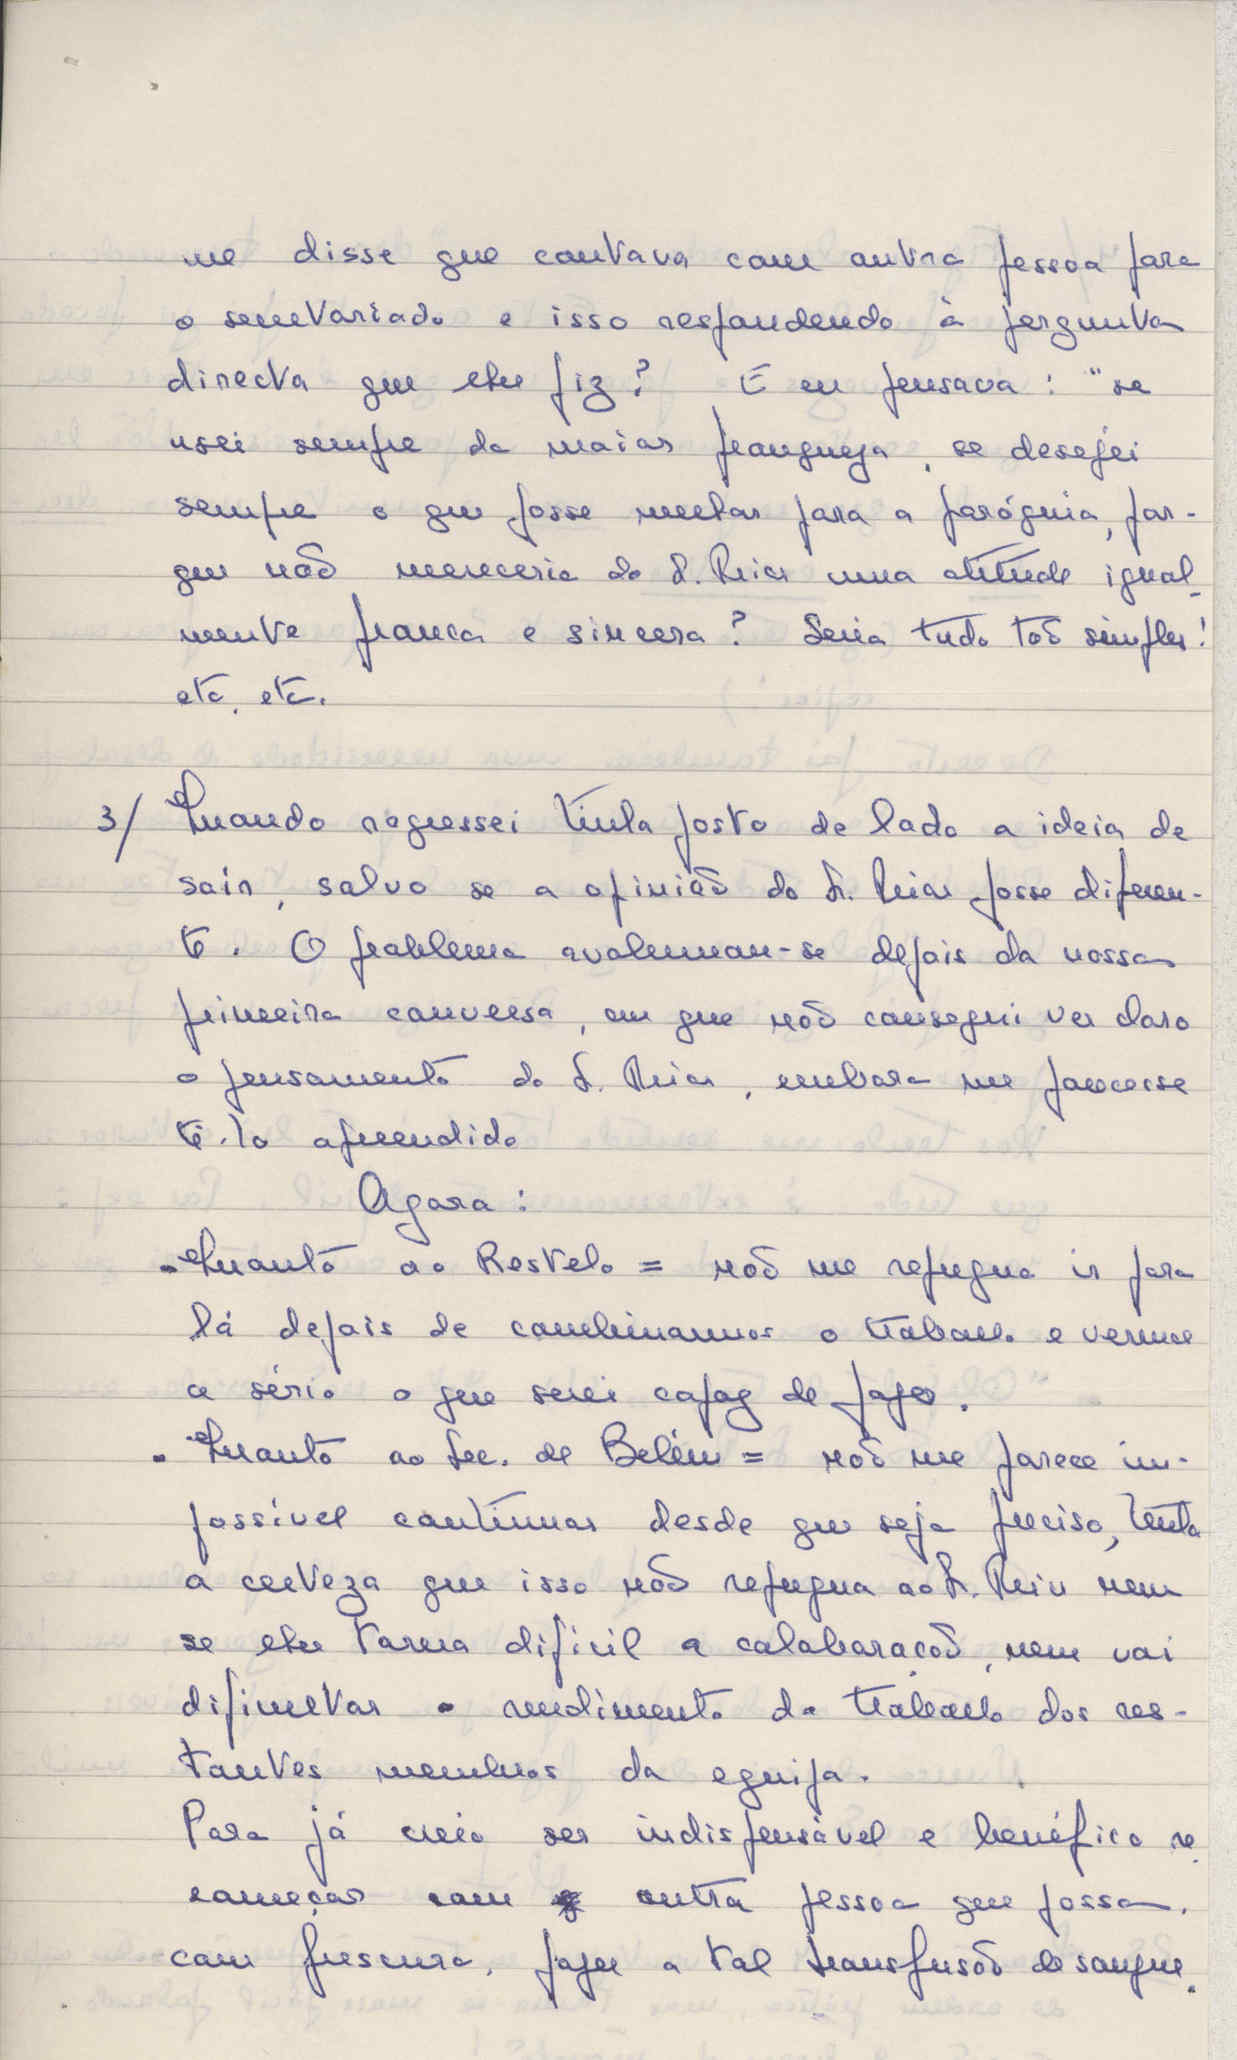 me disse que contava com outra pessoa para
o semvariado e isso respondendo à pergunta
directa que lhe fiz? E eu pensava: "se
usei sempre da maior franqueza, se desejei
sempre o que fosse melhor para a paróquia, por-
que não mereceria do S. Prior uma atitude igual-
mente franca e sincera? Seria tudo tão simples!
etc, etc.
3/ Quando regressei tinha posto de lado a ideia de
sair, salvo se a opinião do Sr. Prior fosse diferen-
te. O problema avolumou-se depois da nossa
primeira conversa, em que não consegui ver claro
o pensamento do S. Prior, embora me parecesse
tê-lo apreendido
Agora:
. Quanto ao Restelo = não me repugna ir para
lá depois de combinarmos o trabalho e vermos
a sério o que serei capaz de fazer.
. Quanto ao Sec. de Belém = não me parece im-
possível continuar desde que seja preciso, tenha
a certeza que isso não repugna ao Sr. Prior nem
se lhe torna difícil a colaboração, nem vai
dificultar o rendimento do trabalho dos res-
tantes membros da equipa.
Para já creio ser indispensável e benéfico re-
começar com outra pessoa que possa,
com frescura, fazer a tal transfusão de sangue.